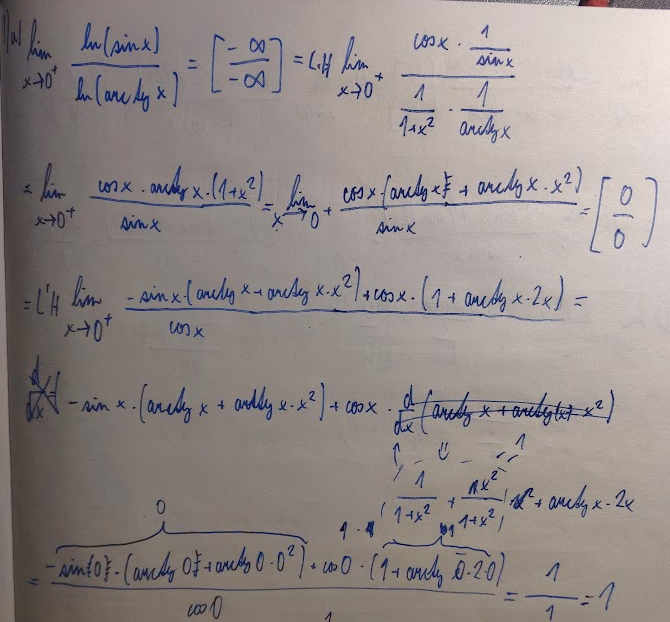 lim x→0⁺ ln(sin x) / ln(arctg x) = [-∞ / -∞] = L'H lim x→0⁺ (cos x · 1/sin x) / (1/(1+x²) · 1/arctg x)
= lim x→0⁺ cos x · arctg x · (1+x²) / sin x = lim x→0⁺ cos x · (arctg x + arctg x · x²) / sin x = [0/0]
= L'H lim x→0⁺ (-sin x · (arctg x + arctg x · x²) + cos x · (1 + arctg x · 2x)) / cos x =
- sin x · (arctg x + arctg x · x²) + cos x · d/dx (arctg x + arctg(x) · x²)
1
(1/(1+x²) + x²/(1+x²)) + arctg x · 2x
0
= (-sin{0} · (arctg 0 + arctg 0 · 0²) + cos 0 · (1 + arctg 0 · 2 · 0)) / cos 0 = 1/1 = 1